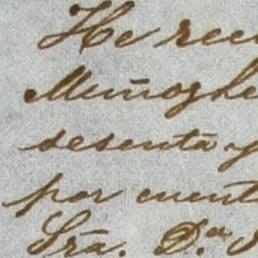 He reci
Muñoz he
sesenta y
por cuent
Sra. Dª